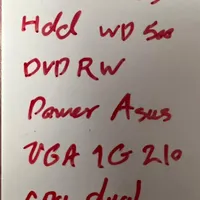 Hdd WD 500
DVD RW
Power Asus
VGA 1G 210
cpu dual